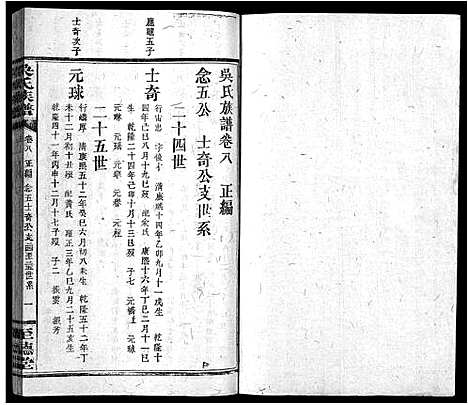 吳氏族譜卷八 正編
念五公 士奇公支世系
二十四世
應聰五子
士奇
行宙忠 字俊千 清康熙十四年乙卯九月十一戌生 乾隆十
四年己巳八月十九巳歿 配宋氏 康熙十六年丁巳二月初八
辰生 乾隆二十四年己卯十月十三巳歿 子七 元橋上
元班 元瑞 元球 元舉 元程
二十五世
士奇次子
元球
行嶙厚 清康熙五十二年癸巳六月初六未生 乾隆五十二年丁
未十二月初十亥歿 配黃氏 雍正三年乙巳九月二十五亥生
乾隆四十一年丙申十二月二十七戌歿 子二 振雲 振芳
吳氏族譜
卷八 正編 念五士奇公支 世系
一
至德堂